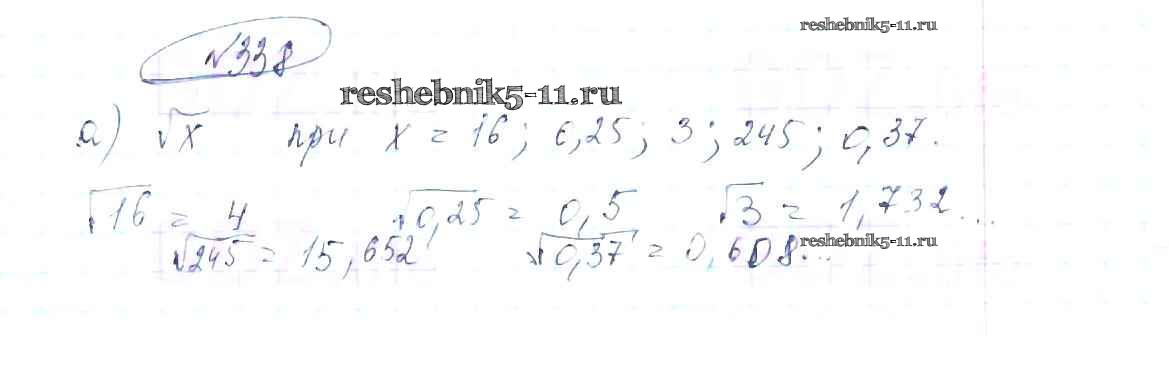 reshebnik5-11.ru
№338
reshebnik5-11.ru
а) √x при x = 16; 0,25; 3; 245; 0,37.
√16 = 4 √0,25 = 0,5 √3 = 1,732...
√245 = 15,652 √0,37 = 0,608... reshebnik5-11.ru